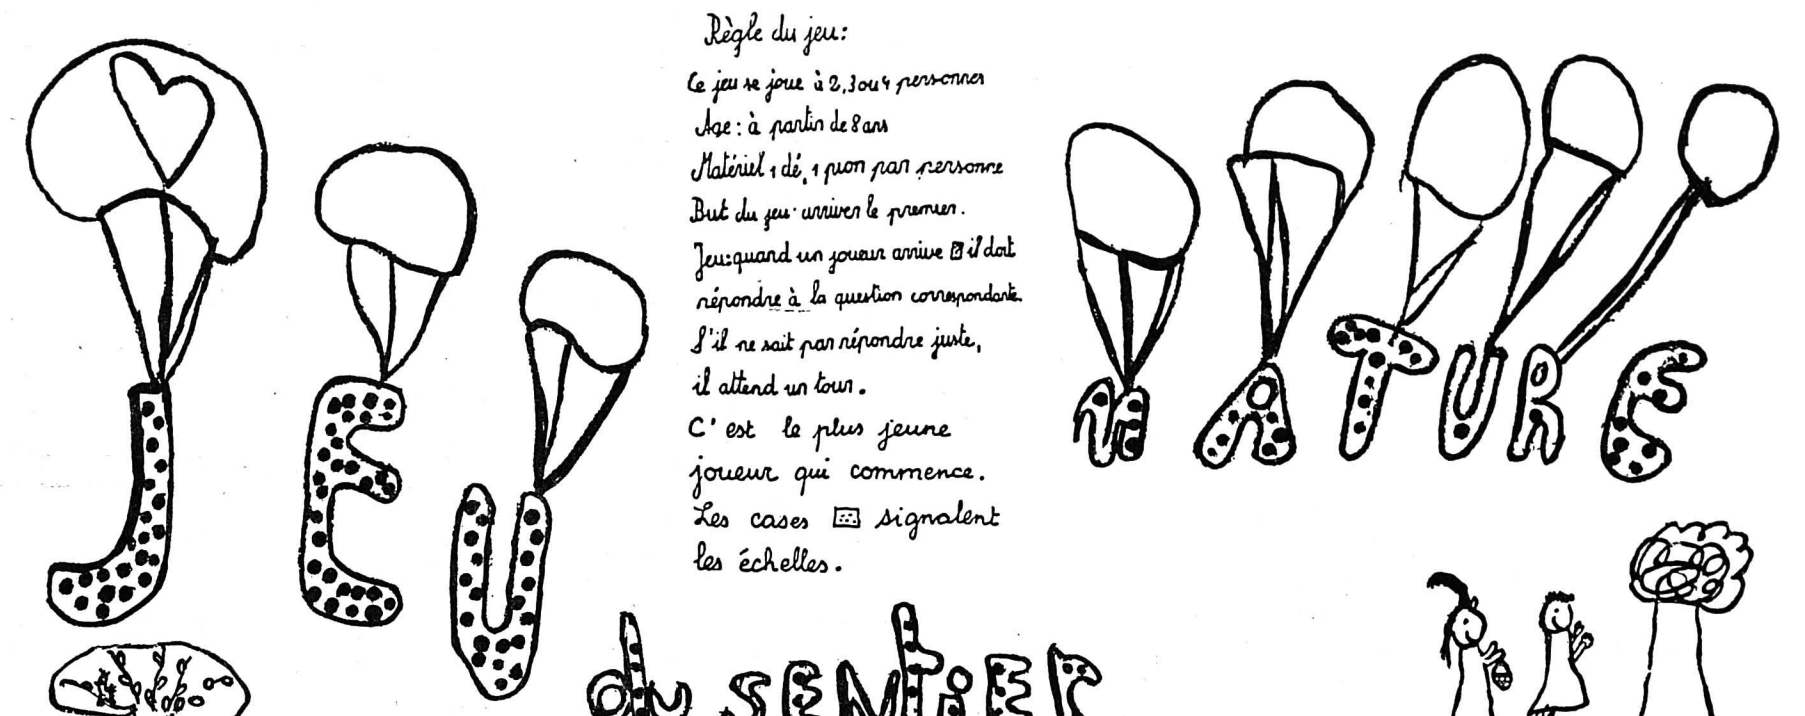 JEU
Règle du jeu:
Ce jeu se joue à 2, 3 ou 4 personnes
Age: à partir de 8 ans
Matériel 1 dé, 1 pion par personne
But du jeu: arriver le premier.
Jeu: quand un joueur arrive il doit
répondre à la question correspondante.
S'il ne sait pas répondre juste,
il attend un tour.
C'est le plus jeune
joueur qui commence.
Les cases signalent
les échelles.
NATURE
du SENTIER